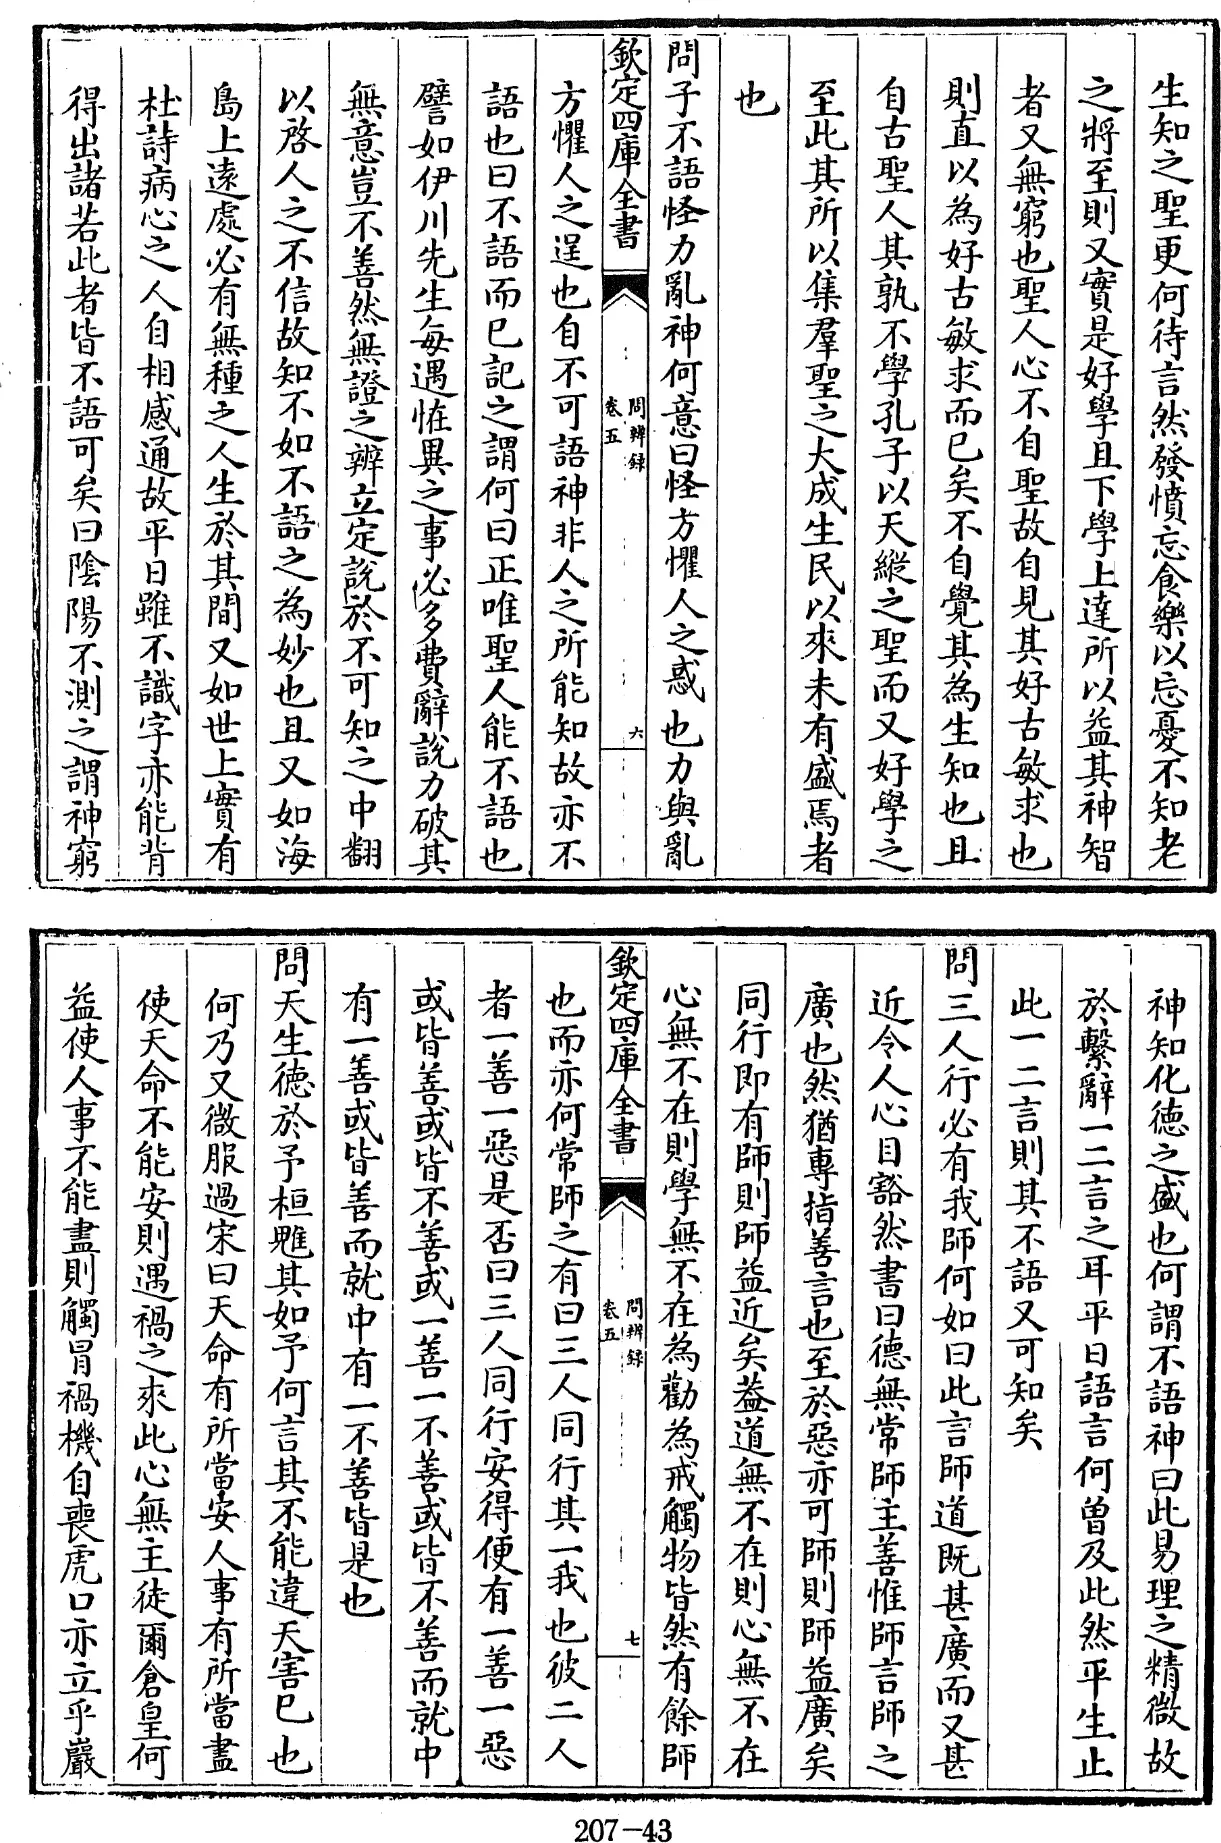 生知之聖更何待言然發憤忘食樂以忘憂不知老
之將至則又實是好學且下學上達所以益其神智
者又無窮也聖人心不自聖故自見其好古敏求也
則直以為好古敏求而已矣不自覺其為生知也且
自古聖人其孰不學孔子以天縱之聖而又好學之
至此其所以集羣聖之大成生民以來未有盛焉者
也
問子不語怪力亂神何意曰怪方懼人之惑也力與亂
欽定四庫全書
問辨録
卷五
六
方懼人之逞也自不可語神非人之所能知故亦不
語也曰不語而已記之謂何曰正唯聖人能不語也
譬如伊川先生每遇怪異之事必多費辭說力破其
無意豈不善然無證之辨立定說於不可知之中翻
以啓人之不信故知不如不語之為妙也且又如海
島上遠處必有無種之人生於其間又如世上實有
杜詩病心之人自相感通故平日雖不識字亦能背
得出諸若此者皆不語可矣曰陰陽不測之謂神窮
神知化德之盛也何謂不語神曰此易理之精微故
於繫辭一二言之耳平日語言何曽及此然平生止
此一二言則其不語又可知矣
問三人行必有我師何如曰此言師道既甚廣而又甚
近令人心目豁然書曰德無常師主善惟師言師之
廣也然猶專指善言也至於惡亦可師則師益廣矣
同行即有師則師益近矣葢道無不在則心無不在
心無不在則學無不在為勸為戒觸物皆然有餘師
欽定四庫全書
問辨録
卷五
七
也而亦何常師之有曰三人同行其一我也彼二人
者一善一惡是否曰三人同行安得便有一善一惡
或皆善或皆不善或一善一不善或皆不善而就中
有一善或皆善而就中有一不善皆是也
問天生德於予桓魋其如予何言其不能違天害已也
何乃又微服過宋曰天命有所當安人事有所當盡
使天命不能安則遇禍之來此心無主徒爾倉皇何
益使人事不能盡則觸冒禍機自喪虎口亦立乎巖
207-43